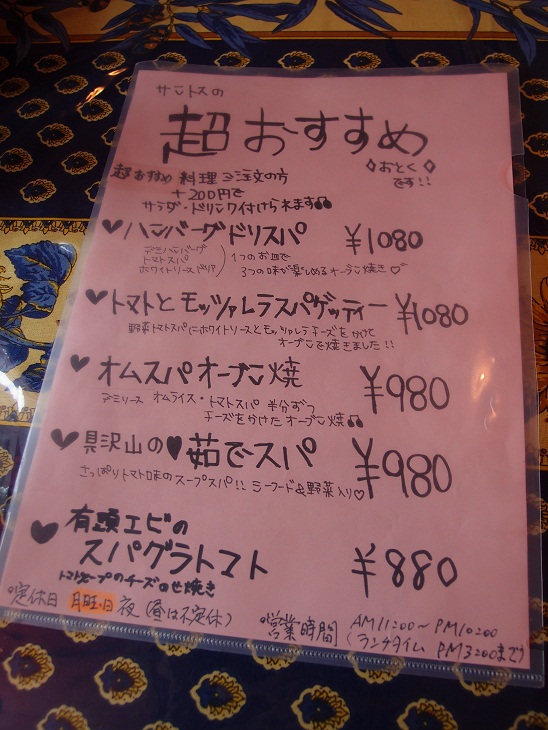 サントスの
超おすすめ
◇おとく◇
です!!
超おすすめ 料理ご注文の方
+200円で
サラダ・ドリンク付けられます♫
♥ハンバーグドリスパ ¥1080
デミハンバーグ
トマトスパ
ホワイトソースドリア
1つのお皿で
3つの味が楽しめるオーブン焼き♡
♥トマトとモッツァレラスパゲッティー ¥1080
野菜トマトスパにホワイトソースとモッツァレラチーズをかけて
オーブンで焼きました!!
♥オムスパオーブン焼 ¥980
デミソース オムライス・トマトスパ 半分ずつ
チーズをかけたオーブン焼♫
♥具沢山の♥茹でスパ ¥980
さっぱりトマト味のスープスパ!! シーフード&野菜入り♡
♥有頭エビの
スパグラトマト ¥880
トマトスープのチーズのせ焼き
定休日 月曜日 夜(昼は不定休)
営業時間 AM11:00〜PM10:00
(ランチタイム PM3:00まで)